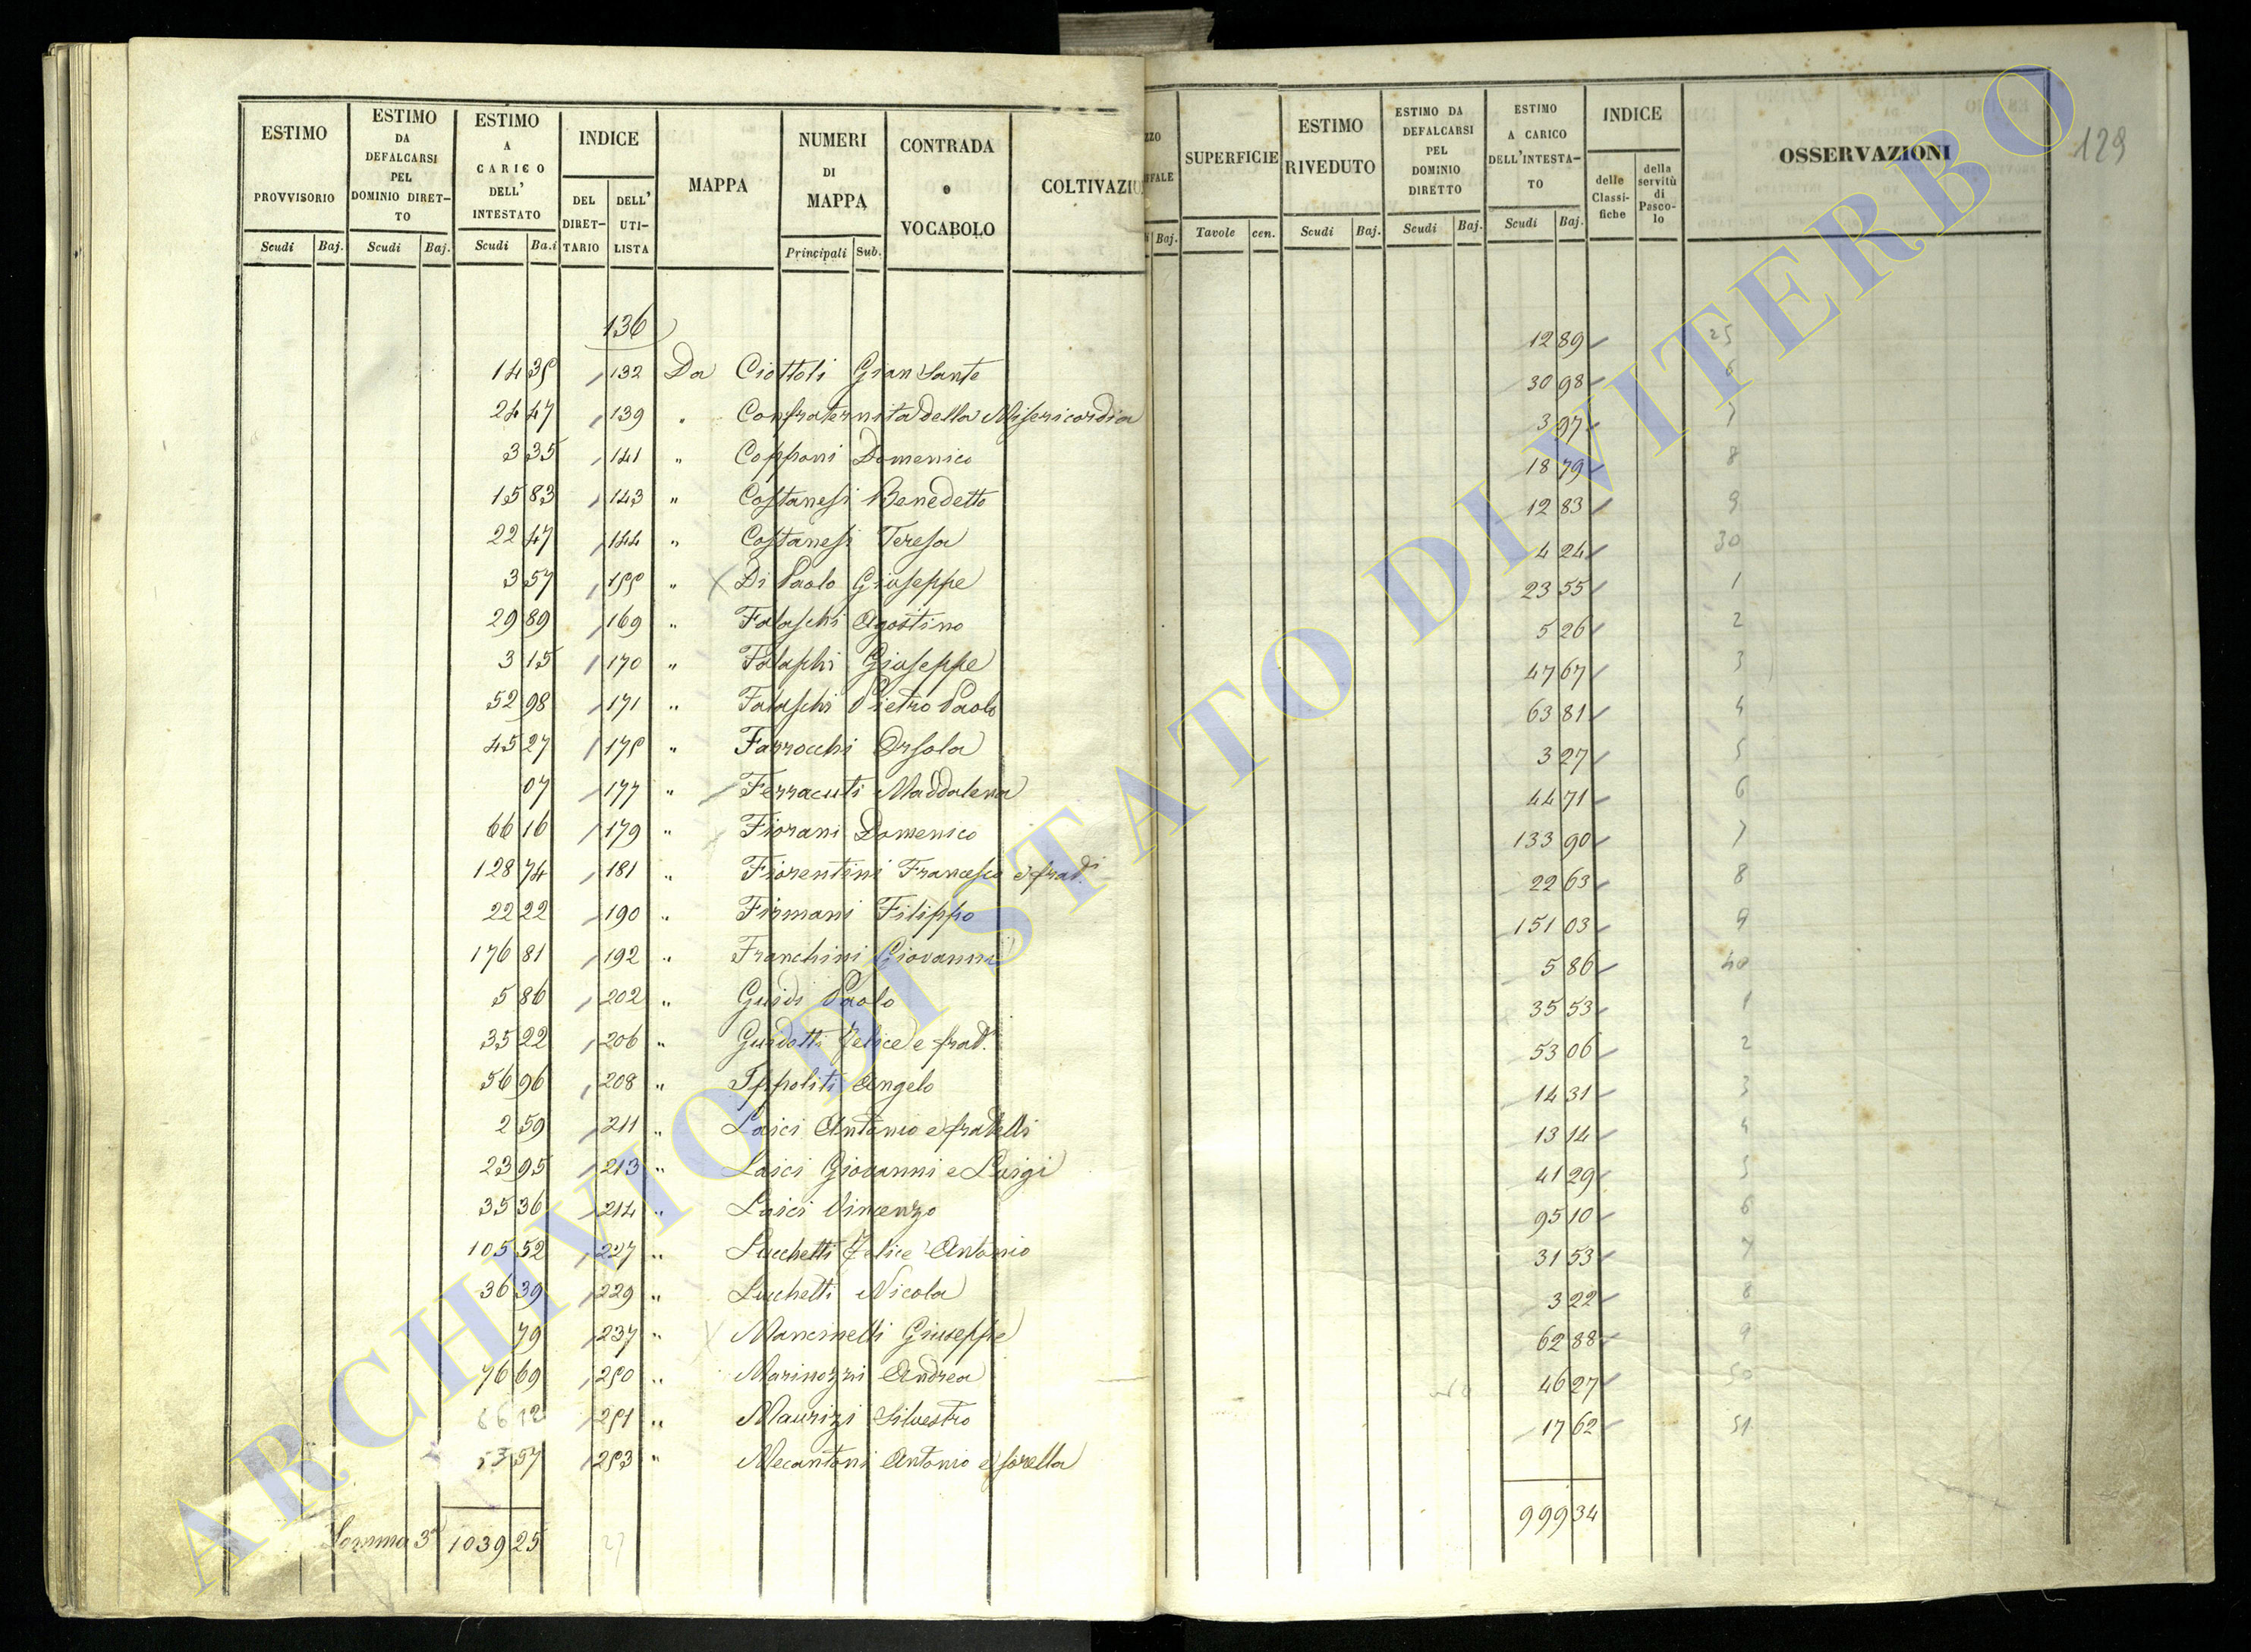 ESTIMO PROVVISORIO
ESTIMO DA DEFALCARSI PEL DOMINIO DIRETTO
ESTIMO A CARICO DELL' INTESTATO
INDICE
DEL DIRETTARIO
DELL' UTILISTA
MAPPA
NUMERI DI MAPPA
CONTRADA o VOCABOLO
COLTIVAZIO
Scudi Baj. Scudi Baj. Scudi Ba.i
Principali Sub.
136
14 35 132 Da Ciottoli Gian Sante
24 47 139 " Confraternita della Misericordia
3 35 141 " Copponi Domenico
15 83 143 " Costanesi Benedetto
22 47 144 " Costanesi Teresa
3 57 155 " Di Paolo Giuseppe
29 89 169 " Falaschi Agostino
3 15 170 " Falaschi Giuseppe
52 98 171 " Falaschi Pietro Paolo
45 27 175 " Farrocchi Orsola
07 177 " Ferracuti Maddalena
66 16 179 " Fiorani Domenico
128 74 181 " Fiorentini Francesco e frad.i
22 22 190 " Firmani Filippo
176 81 192 " Franchini Giovanni
5 86 202 " Guidi Paolo
35 22 206 " Guidotti Felice e frad.i
56 96 208 " Ippoliti Angelo
2 59 211 " Laici Antonio e fratelli
23 95 213 " Laici Giovanni e Luigi
35 36 214 " Laici Vincenzo
105 52 227 " Lucchetti Felice Antonio
36 39 229 " Lucchetti Nicola
79 237 " Mancinelli Giuseppe
76 69 250 " Marinozzi Andrea
66 12 251 " Maurizi Silvestro
53 57 253 " Mecantoni Antonio e sorella
Somma 3a 1039 25
27
ZZO
FFALE
Baj.
SUPERFICIE
Tavole cen.
ESTIMO RIVEDUTO
Scudi Baj.
ESTIMO DA DEFALCARSI PEL DOMINIO DIRETTO
Scudi Baj.
ESTIMO A CARICO DELL'INTESTATO
Scudi Baj.
INDICE
delle Classifiche
della servitù di Pascolo
OSSERVAZIONI
129
12 89 25
30 98 6
3 97 7
18 79 8
12 83 9
4 24 30
23 55 1
5 26 2
47 67 3
63 81 4
3 27 5
44 71 6
133 90 7
22 63 8
151 03 9
5 86 40
35 53 1
53 06 2
14 31 3
13 14 4
41 29 5
95 10 6
31 53 7
3 22 8
62 88 9
46 27 50
17 62 51
999 34
ARCHIVIO DI STATO DI VITERBO